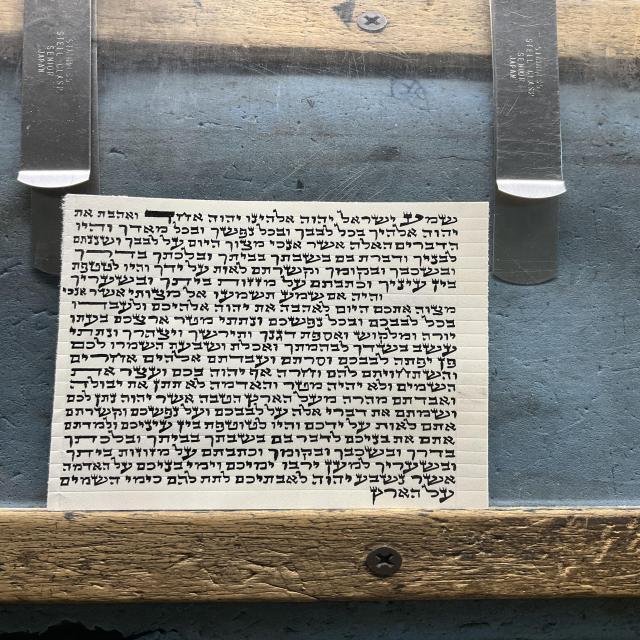 שמע ישראל יהוה אלהינו יהוה אחד ואהבת את
יהוה אלהיך בכל לבבך ובכל נפשך ובכל מאדך והיו
הדברים האלה אשר אנכי מצוך היום על לבבך ושננתם
לבניך ודברת בם בשבתך בביתך ובלכתך בדרך
ובשכבך ובקומך וקשרתם לאות על ידך והיו לטטפת
בין עיניך וכתבתם על מזזות ביתך ובשעריך
והיה אם שמע תשמעו אל מצותי אשר אנכי
מצוה אתכם היום לאהבה את יהוה אלהיכם ולעבדו
בכל לבבכם ובכל נפשכם ונתתי מטר ארצכם בעתו
יורה ומלקוש ואספת דגנך ותירשך ויצהרך ונתתי
עשב בשדך לבהמתך ואכלת ושבעת השמרו לכם
פן יפתה לבבכם וסרתם ועבדתם אלהים אחרים
והשתחויתם להם וחרה אף יהוה בכם ועצר את
השמים ולא יהיה מטר והאדמה לא תתן את יבולה
ואבדתם מהרה מעל הארץ הטבה אשר יהוה נתן לכם
ושמתם את דברי אלה על לבבכם ועל נפשכם וקשרתם
אתם לאות על ידכם והיו לטוטפת בין עיניכם ולמדתם
אתם את בניכם לדבר בם בשבתך בביתך ובלכתך
בדרך ובשכבך ובקומך וכתבתם על מזוזות ביתך
ובשעריך למען ירבו ימיכם וימי בניכם על האדמה
אשר נשבע יהוה לאבתיכם לתת להם כימי השמים
על הארץ
STEEL CLASP
SENIOR
JAPAN
STEEL CLASP
SENIOR
JAPAN